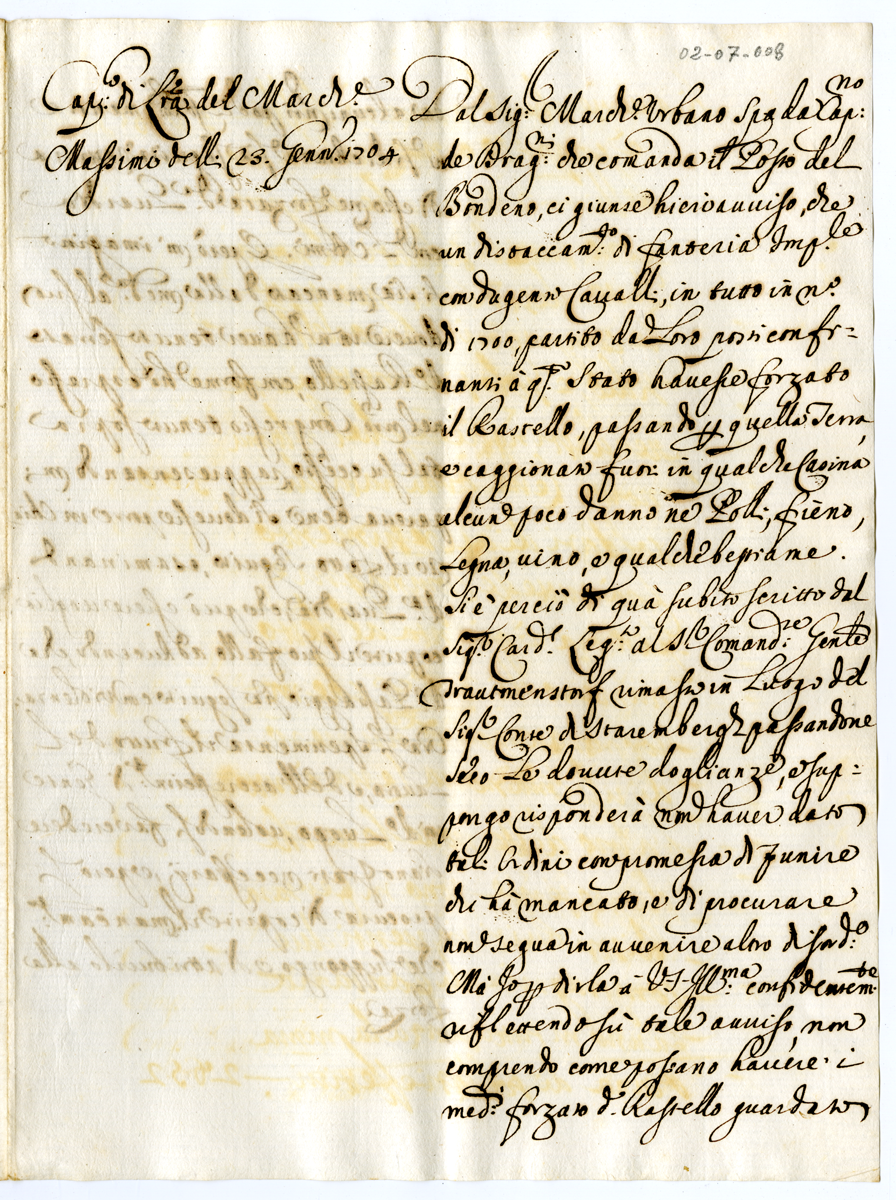 02-07-008
Cap:lo di Lra del March:e
Massimi dell: 23. Genn:o 1704
Dal Sig:r March:e Urbano Spada Cap:no
de Drag:ni che comanda il Posto del
Bondeno, ci giunse hieri avviso, che
un distaccam:to di fanteria Imp:le
con dugento Cavalli, in tutto in n:o
di 1700, partito da Loro posti confi-
nanti à q:to Stato havesse forzato
il Rastello, passando p quella Terra,
e caggionato fuori in qualche Casina
alcun poco danno ne Polli, fieno,
Legna, vino, e qualche bestiame.
Si è perciò di quà subito scritto dal
Sig:r Card:l Leg:to al S:r Comand:te Gen:le
Trautmenstorf rimasto in Luogo del
Sig:r Conte di Starembergh passandone
Seco Le dovute doglianze, e sup-
pongo risponderà non haver dato
tali Ordini con promessa di punire
chi hà mancato, e di procurare
non segua in avvenire altro disord:e
Mà Io p dirla à V S Ill:ma confidentem:te
riflettendo sù tale avviso, non
comprendo come possano havere i
med:i forzato d:o Rastello guardato